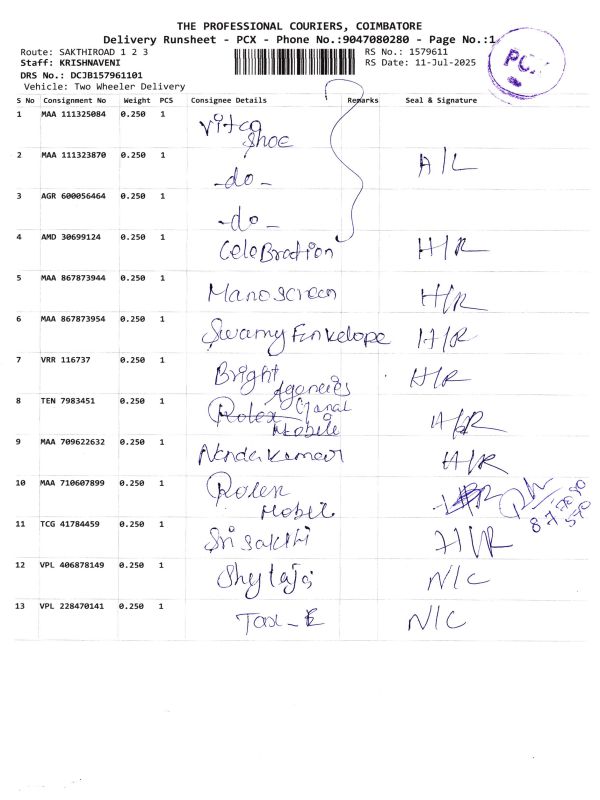 THE PROFESSIONAL COURIERS, COIMBATORE
Delivery Runsheet - PCX - Phone No.:9047080280 - Page No.:1
Route: SAKTHIROAD 1 2 3 RS No.: 1579611
Staff: KRISHNAVENI RS Date: 11-Jul-2025
DRS No.: DCJB157961101
Vehicle: Two Wheeler Delivery
PCX
S No Consignment No Weight PCS Consignee Details Remarks Seal & Signature
1 MAA 111325084 0.250 1 Shoe
2 MAA 111323870 0.250 1 -do- A/L
3 AGR 600056464 0.250 1 -do-
4 AMD 30699124 0.250 1 CeleBration H/R
5 MAA 867873944 0.250 1 Manoscreen H/R
6 MAA 867873954 0.250 1 Swamy Envelope H/R
7 VRR 116737 0.250 1 Bright Agencies H/R
8 TEN 7983451 0.250 1 Rolex Mobile H/R
9 MAA 709622632 0.250 1 Nandakumar H/R
10 MAA 710607899 0.250 1 Rolex Mobile
11 TCG 41784459 0.250 1 Sri Sakthi H/R
12 VPL 406878149 0.250 1 Shylaja N/C
13 VPL 228470141 0.250 1 Tax-E N/C